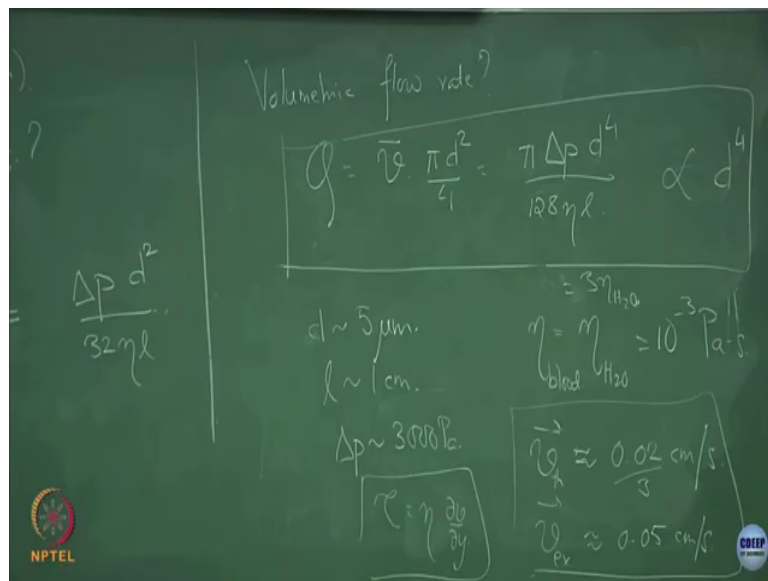 ).
?
= Δp d² / 32ηl
Volumetric flow rate?
Q = v̄ . πd²/4 = πΔp d⁴ / 128ηl. ∝ d⁴
d ~ 5 μm.
l ~ 1 cm.
Δp ~ 3000 Pa.
τ = η ∂v/∂y
= 3η H₂O
η blood = η H₂O = 10⁻³ Pa-s.
≈ 0.02/3 cm/s.
v⃗ ex ≈ 0.05 cm/s.
NPTEL
CDEEP
IIT BOMBAY